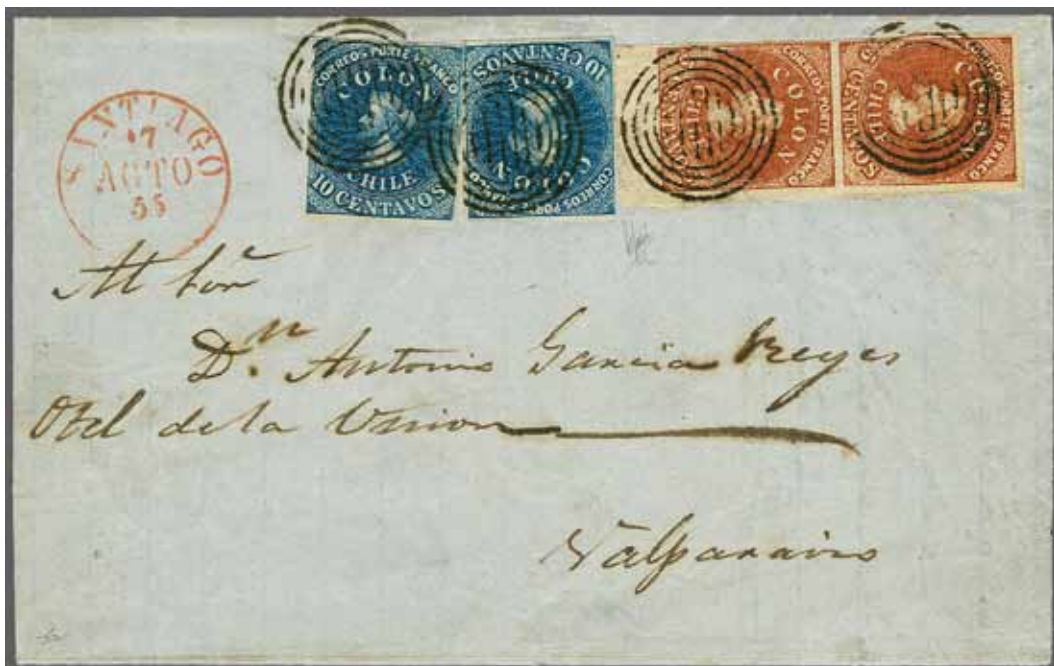 CORREOS PORTE FRANCO
COLON
CHILE
10 CENTAVOS
CORREOS PORTE FRANCO
COLON
CHILE
10 CENTAVOS
CORREOS PORTE FRANCO
COLON
CHILE
CENTAVOS
CORREOS PORTE FRANCO
COLON
CHILE
5 CENTAVOS
SANTIAGO
17
AGTO
55
Al Sor
Dn. Antonio Garcia Reyes
Otel de la Union
Valparaiso